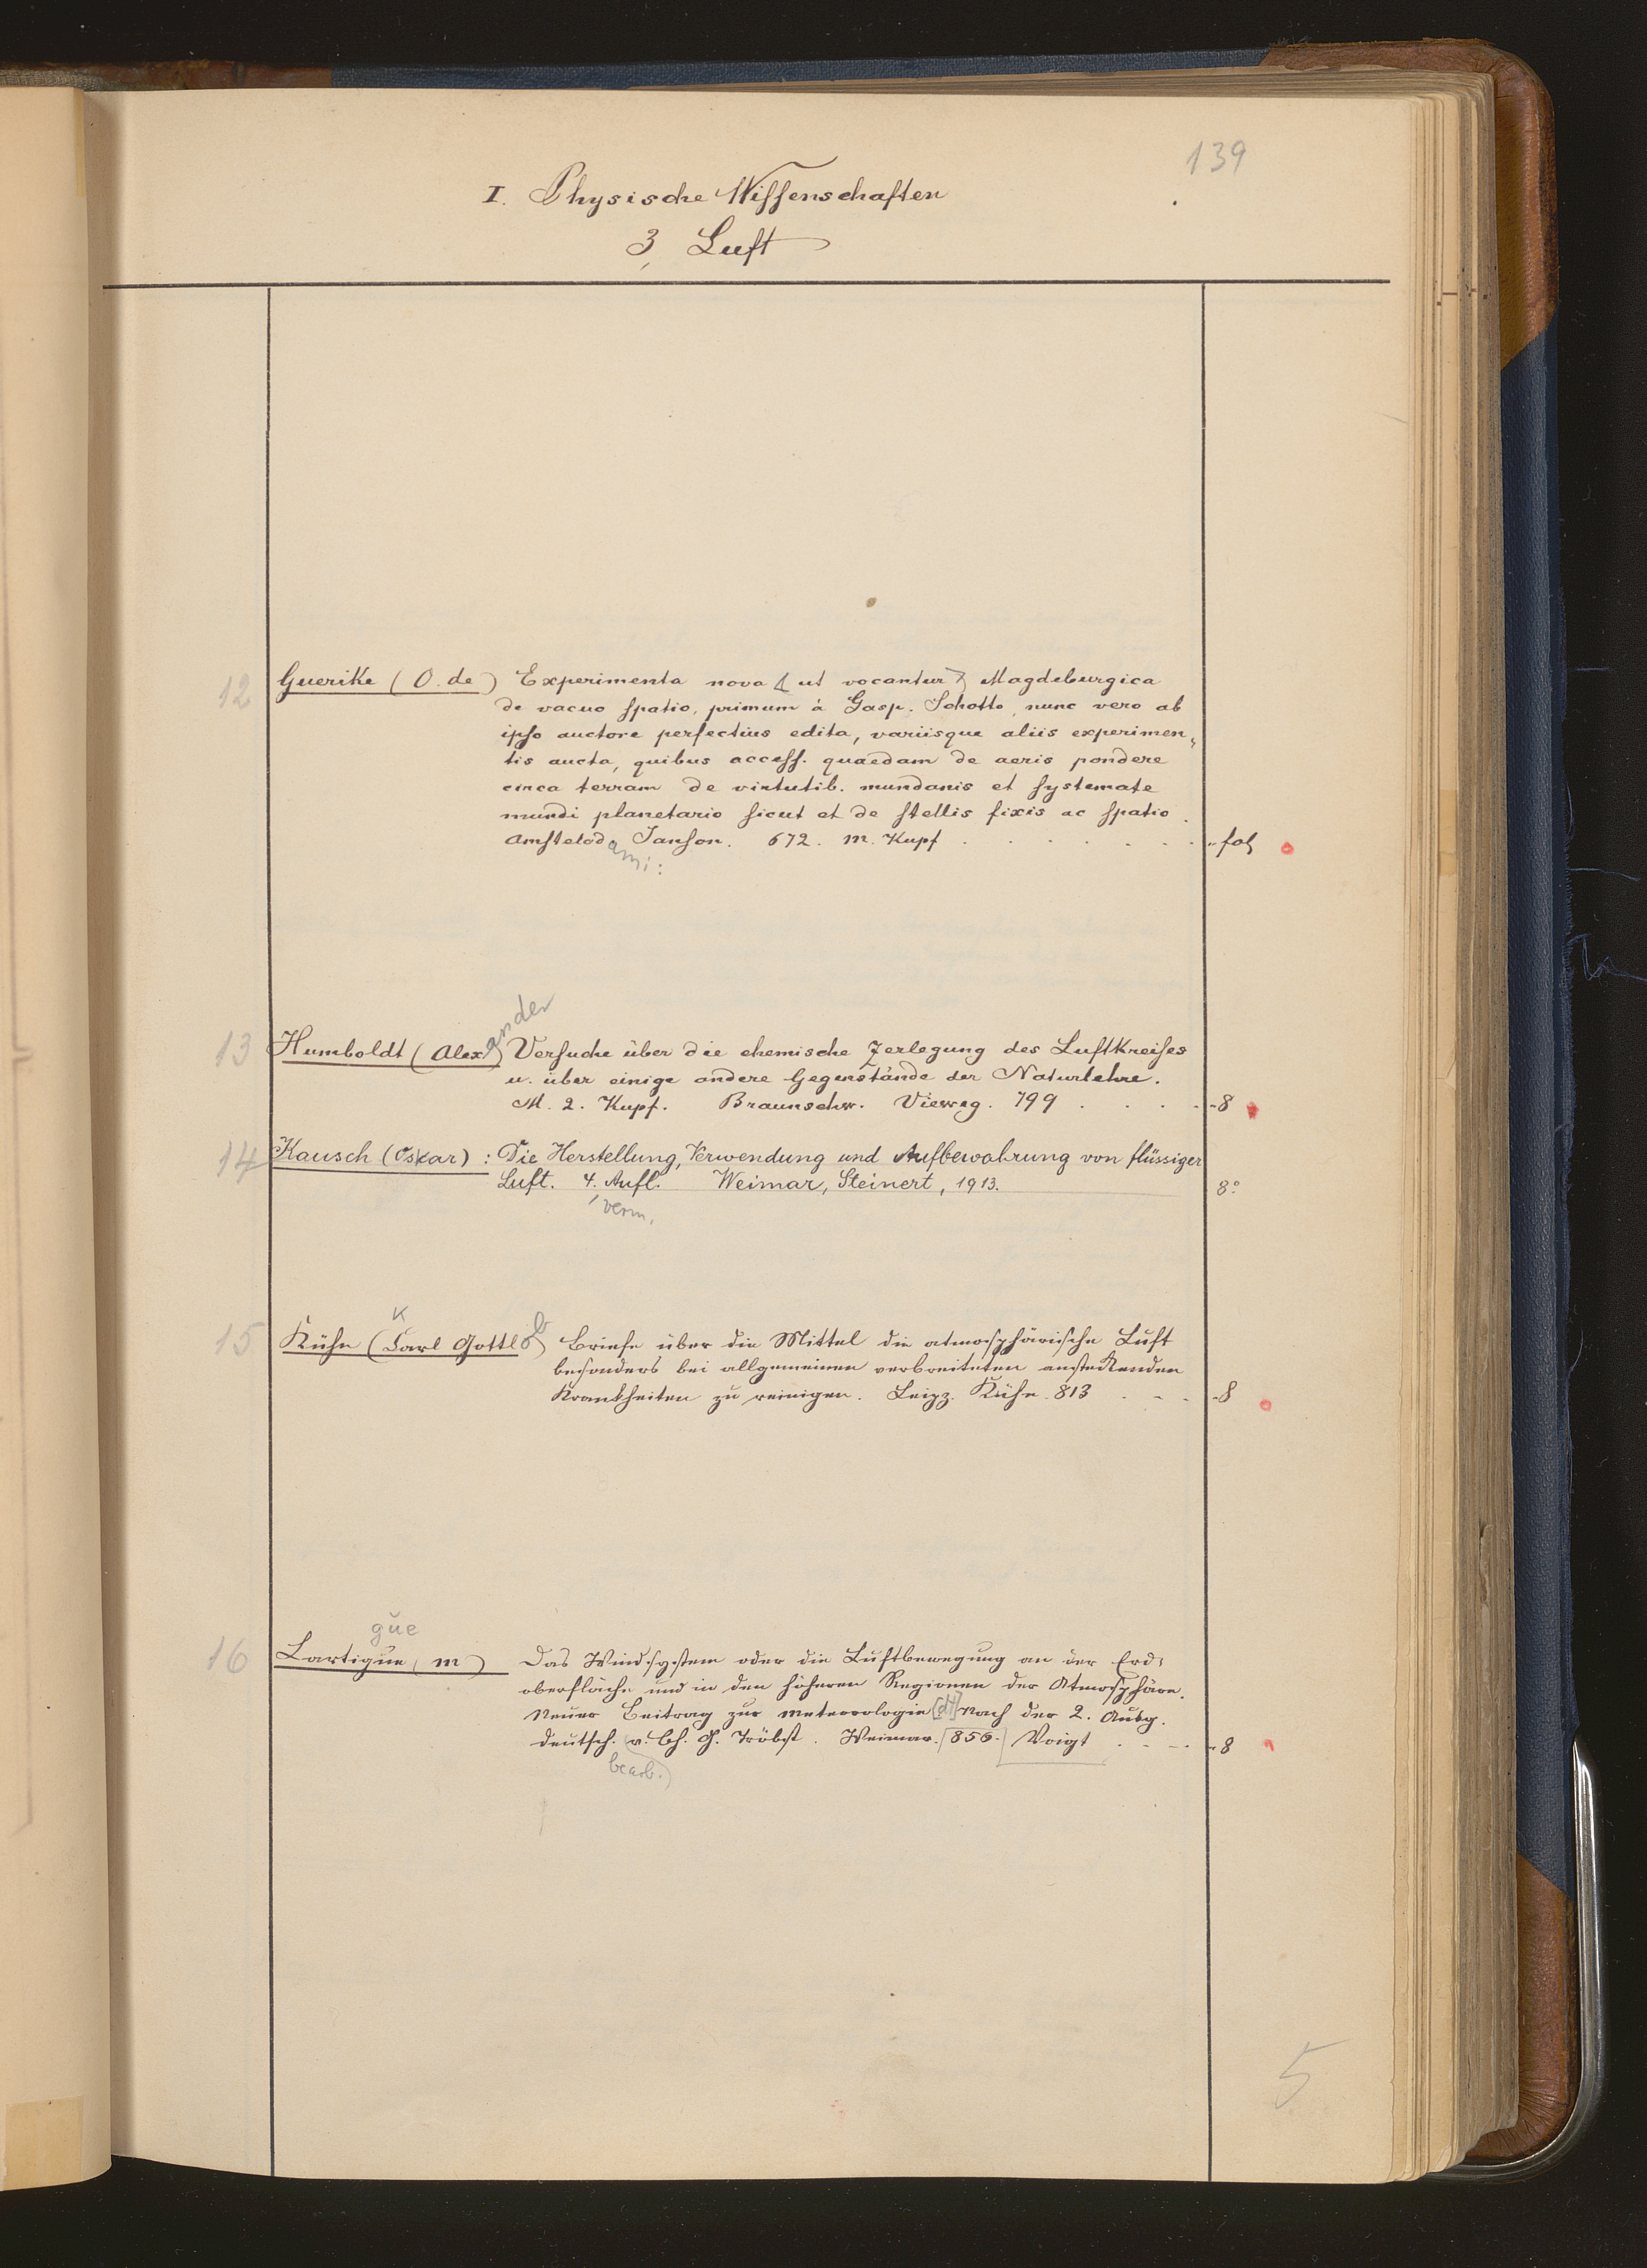 139
I. Physische Wissenschaften
3, Luft
12 Guerike (O. de) Experimenta nova (ut vocantur) Magdeburgica
de vacuo spatio, primum à Gasp. Schotto, nunc vero ab
ipso auctore perfectius edita, variisque aliis experimen„
tis aucta, quibus access. quaedam de aeris pondere
circa terram de virtutib. mundanis et systemate
mundi planetario sicut et de stellis fixis ac spatio.
Amstelod Janson. 672. m. Kupf . . . . . . . „ fol
ami:
ander
13 Humboldt (Alex.) Versuche über die chemische Zerlegung des Luftkreises
u. über einige andere Gegenstände der Naturlehre.
M. 2. Kupf. Braunschw. Vieweg. 799 . . . . . 8
14 Kausch (Oskar) : Die Herstellung, Verwendung und Aufbewahrung von flüssiger
Luft. 4. Aufl. Weimar, Steinert, 1913. 8°
verm.
K
15 Kühn (Carl Gottlob) Briefe über die Mittel die atmosphärische Luft
besonders bei allgemeinen verbreiteten ansteckenden
Krankheiten zu reinigen. Leipz. Kühn. 813 . - - - 8
gue
16 Lartigue (M) Das Windsystem oder die Luftbewegung an der Erd-
oberfläche und in den höheren Regionen der Atmosphäre.
Neuer Beitrag zur Meteorologie [dt] Nach der 2. Ausg.
deutsch. v. Ch. G. Tröbst. Weimar. 856. Voigt . - - - 8
bearb.
5